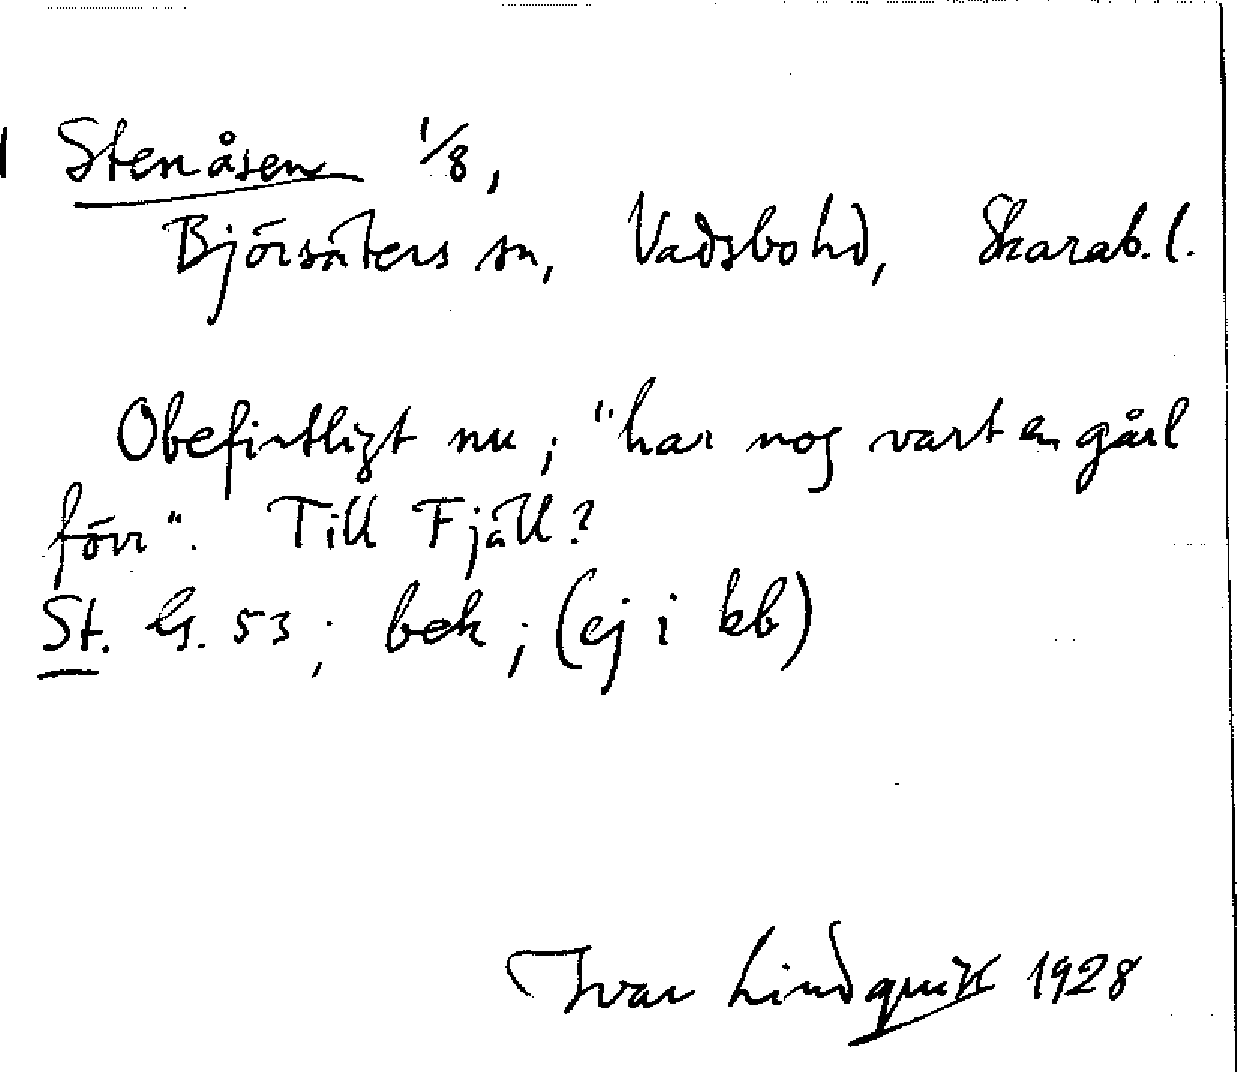 Stenåsen 1/8,
Björsäters sn, Vadsbo hd, Skarab. l.
Obefintligt nu; "har nog vart en gård
förr". Till Fjäll?
St. G. 53; bek; (ej i kb)
Ivar Lindquist 1928